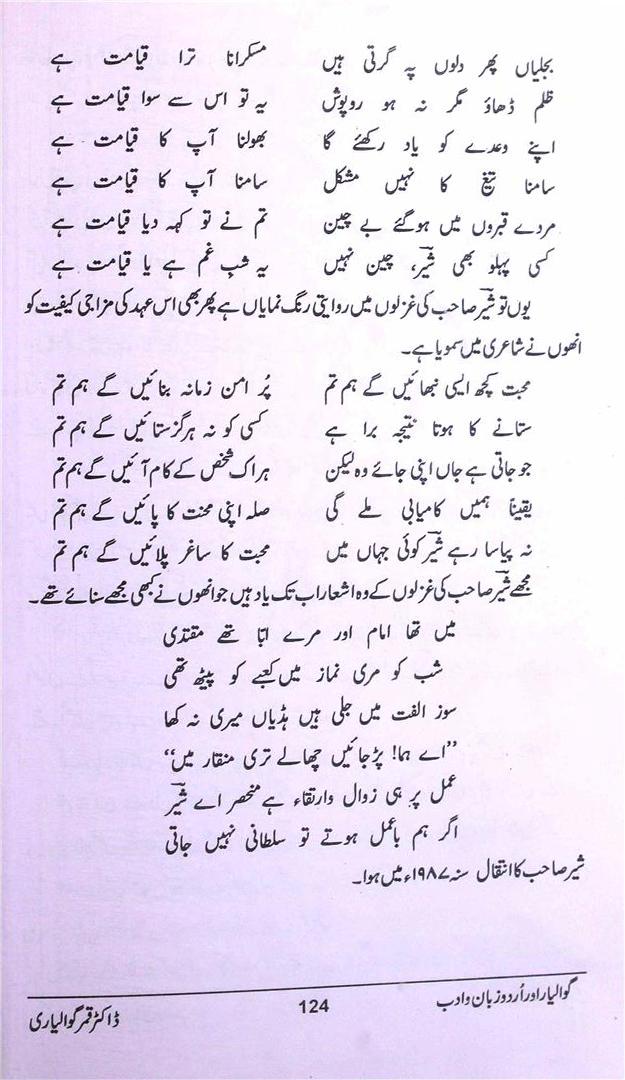 بجلیاں پھر دلوں پہ گرتی ہیں مسکرانا ترا قیامت ہے
ظلم ڈھاؤ مگر نہ ہو روپوش یہ تو اس سے سوا قیامت ہے
اپنے وعدے کو یاد رکھئے گا بھولنا آپ کا قیامت ہے
سامنا تیغ کا نہیں مشکل سامنا آپ کا قیامت ہے
مردے قبروں میں ہوگئے بے چین تم نے تو کہہ دیا قیامت ہے
کسی پہلو بھی شیرؔ، چین نہیں یہ شبِ غم ہے یا قیامت ہے
یوں تو شیرؔ صاحب کی غزلوں میں روایتی رنگ نمایاں ہے پھر بھی اس عہد کی مزاجی کیفیت کو
انھوں نے شاعری میں سمویا ہے۔
محبت کچھ ایسی نبھائیں گے ہم تم پُر امن زمانہ بنائیں گے ہم تم
ستانے کا ہوتا نتیجہ برا ہے کسی کو نہ ہرگز ستائیں گے ہم تم
جو جاتی ہے جاں اپنی جائے وہ لیکن ہر اک شخص کے کام آئیں گے ہم تم
یقیناً ہمیں کامیابی ملے گی صلہ اپنی محنت کا پائیں گے ہم تم
نہ پیاسا رہے شیرؔ کوئی جہاں میں محبت کا ساغر پلائیں گے ہم تم
مجھے شیرؔ صاحب کی غزلوں کے وہ اشعار اب تک یاد ہیں جو انھوں نے کبھی مجھے سنائے تھے۔
میں تھا امام اور مرے ابّا تھے مقتدی
شب کو مری نماز میں کعبے کو پیٹھ تھی
سوز الفت میں جلی ہیں ہڈیاں میری نہ کھا
"اے ہما! پڑ جائیں چھالے تری منقار میں"
عمل پر ہی زوال وارتقاء ہے منحصر اے شیرؔ
اگر ہم باعمل ہوتے تو سلطانی نہیں جاتی
شیر صاحب کا انتقال سنہ ۱۹۸۷ء میں ہوا۔
گوالیار اور اُردو زبان و ادب 124 ڈاکٹر قمر گوالیاری